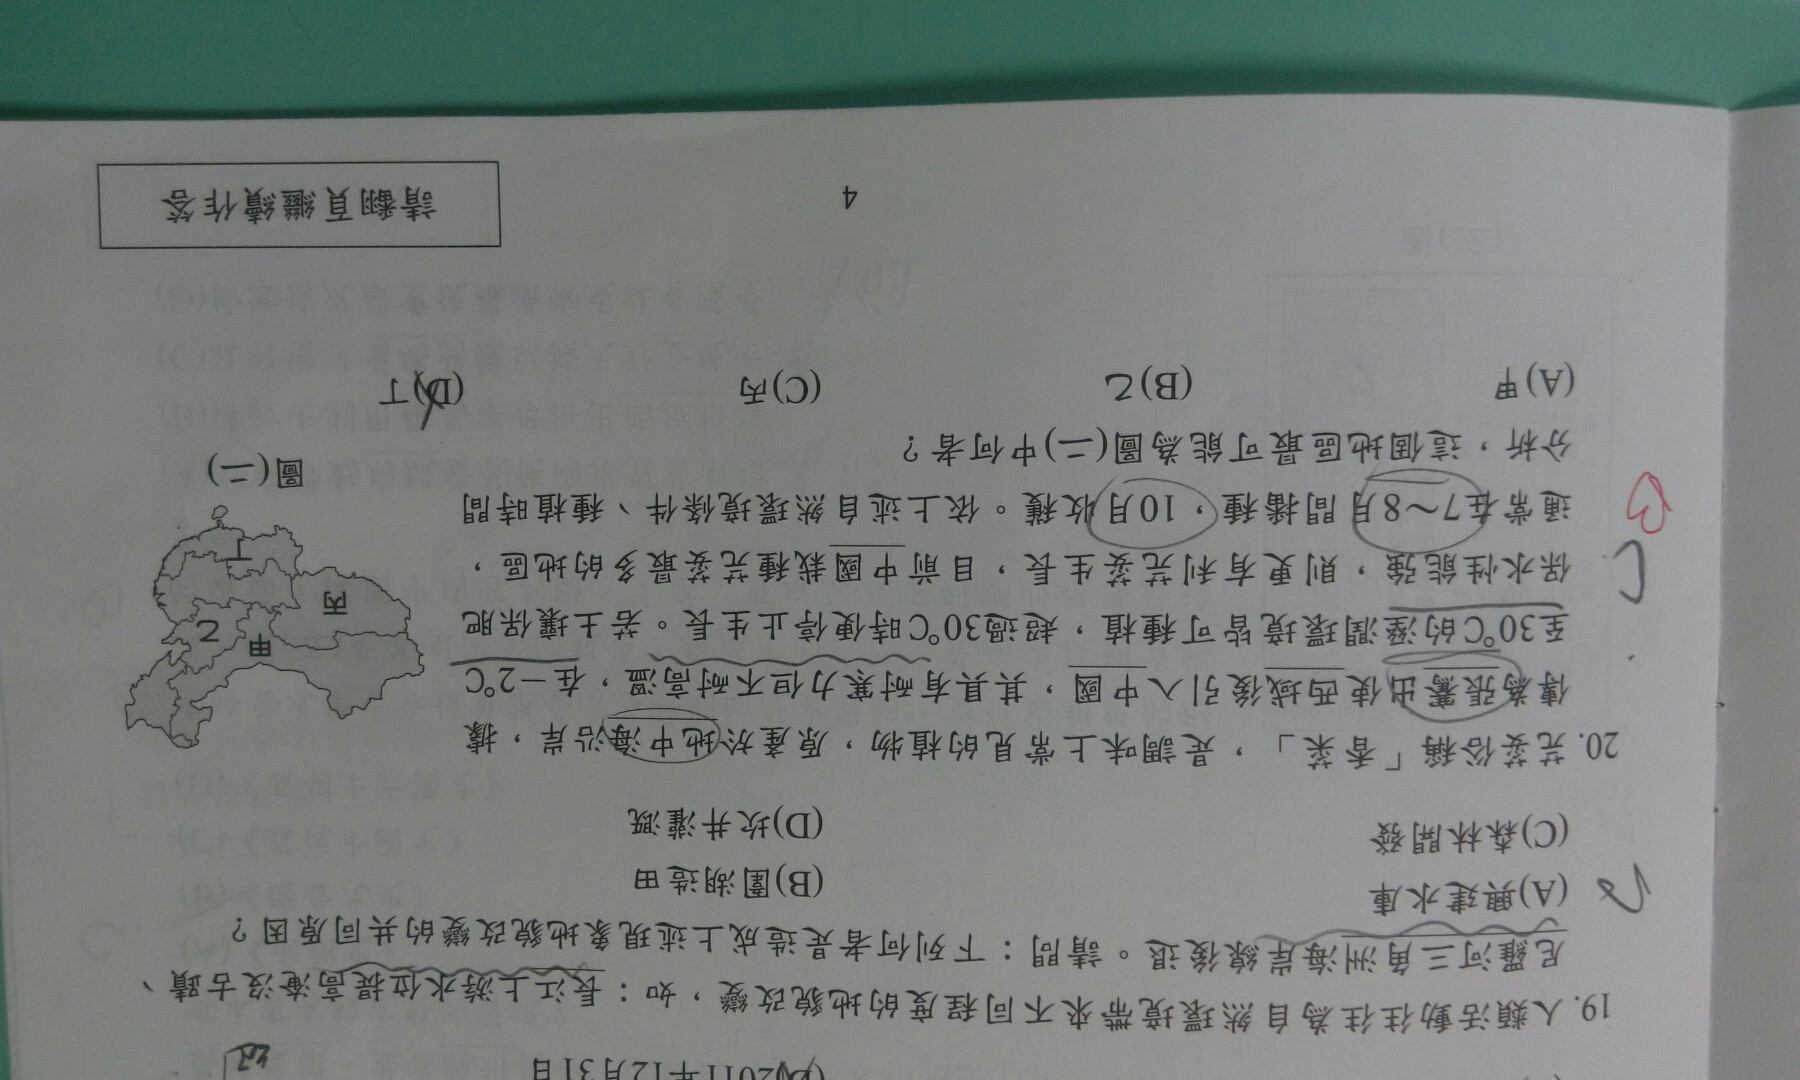 (D)2011年12月31日
19. 人類活動往往為自然環境帶來不同程度的地貌改變，如：長江上游水位提高淹沒古蹟、
尼羅河三角洲海岸線後退。請問：下列何者是造成上述現象地貌改變的共同原因？
(A)興建水庫 (B)圍湖造田
(C)森林開發 (D)坎井灌溉
20. 芫荽俗稱「香菜」，是調味上常見的植物，原產於地中海沿岸，據
傳為張騫出使西域後引入中國，其具有耐寒力但不耐高溫，在－2°C
至30°C的溼潤環境皆可種植，超過30°C時便停止生長。若土壤保肥
保水性能強，則更有利芫荽生長，目前中國栽種芫荽最多的地區，
通常在7～8月間播種，10月收穫。依上述自然環境條件、種植時間
分析，這個地區最可能為圖(一)中何者？
甲
乙
丙
丁
圖(一)
(A)甲 (B)乙 (C)丙 (D)丁
C
B
4
請翻頁繼續作答